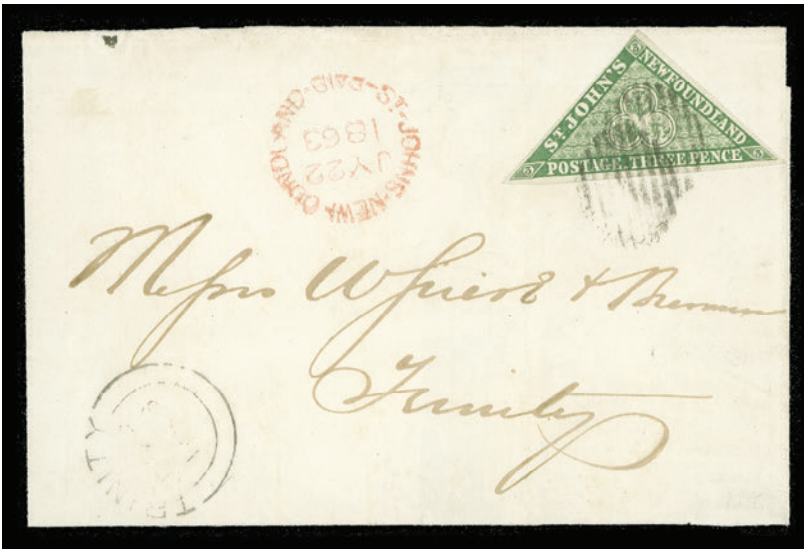 ST JOHN'S
NEWFOUNDLAND
POSTAGE. THREE PENCE
3
3
3
ST-JOHNS-NEWFOUNDLAND-PAID-
JY 22
1863
Messrs W & Brennan
Trinity
TRINITY